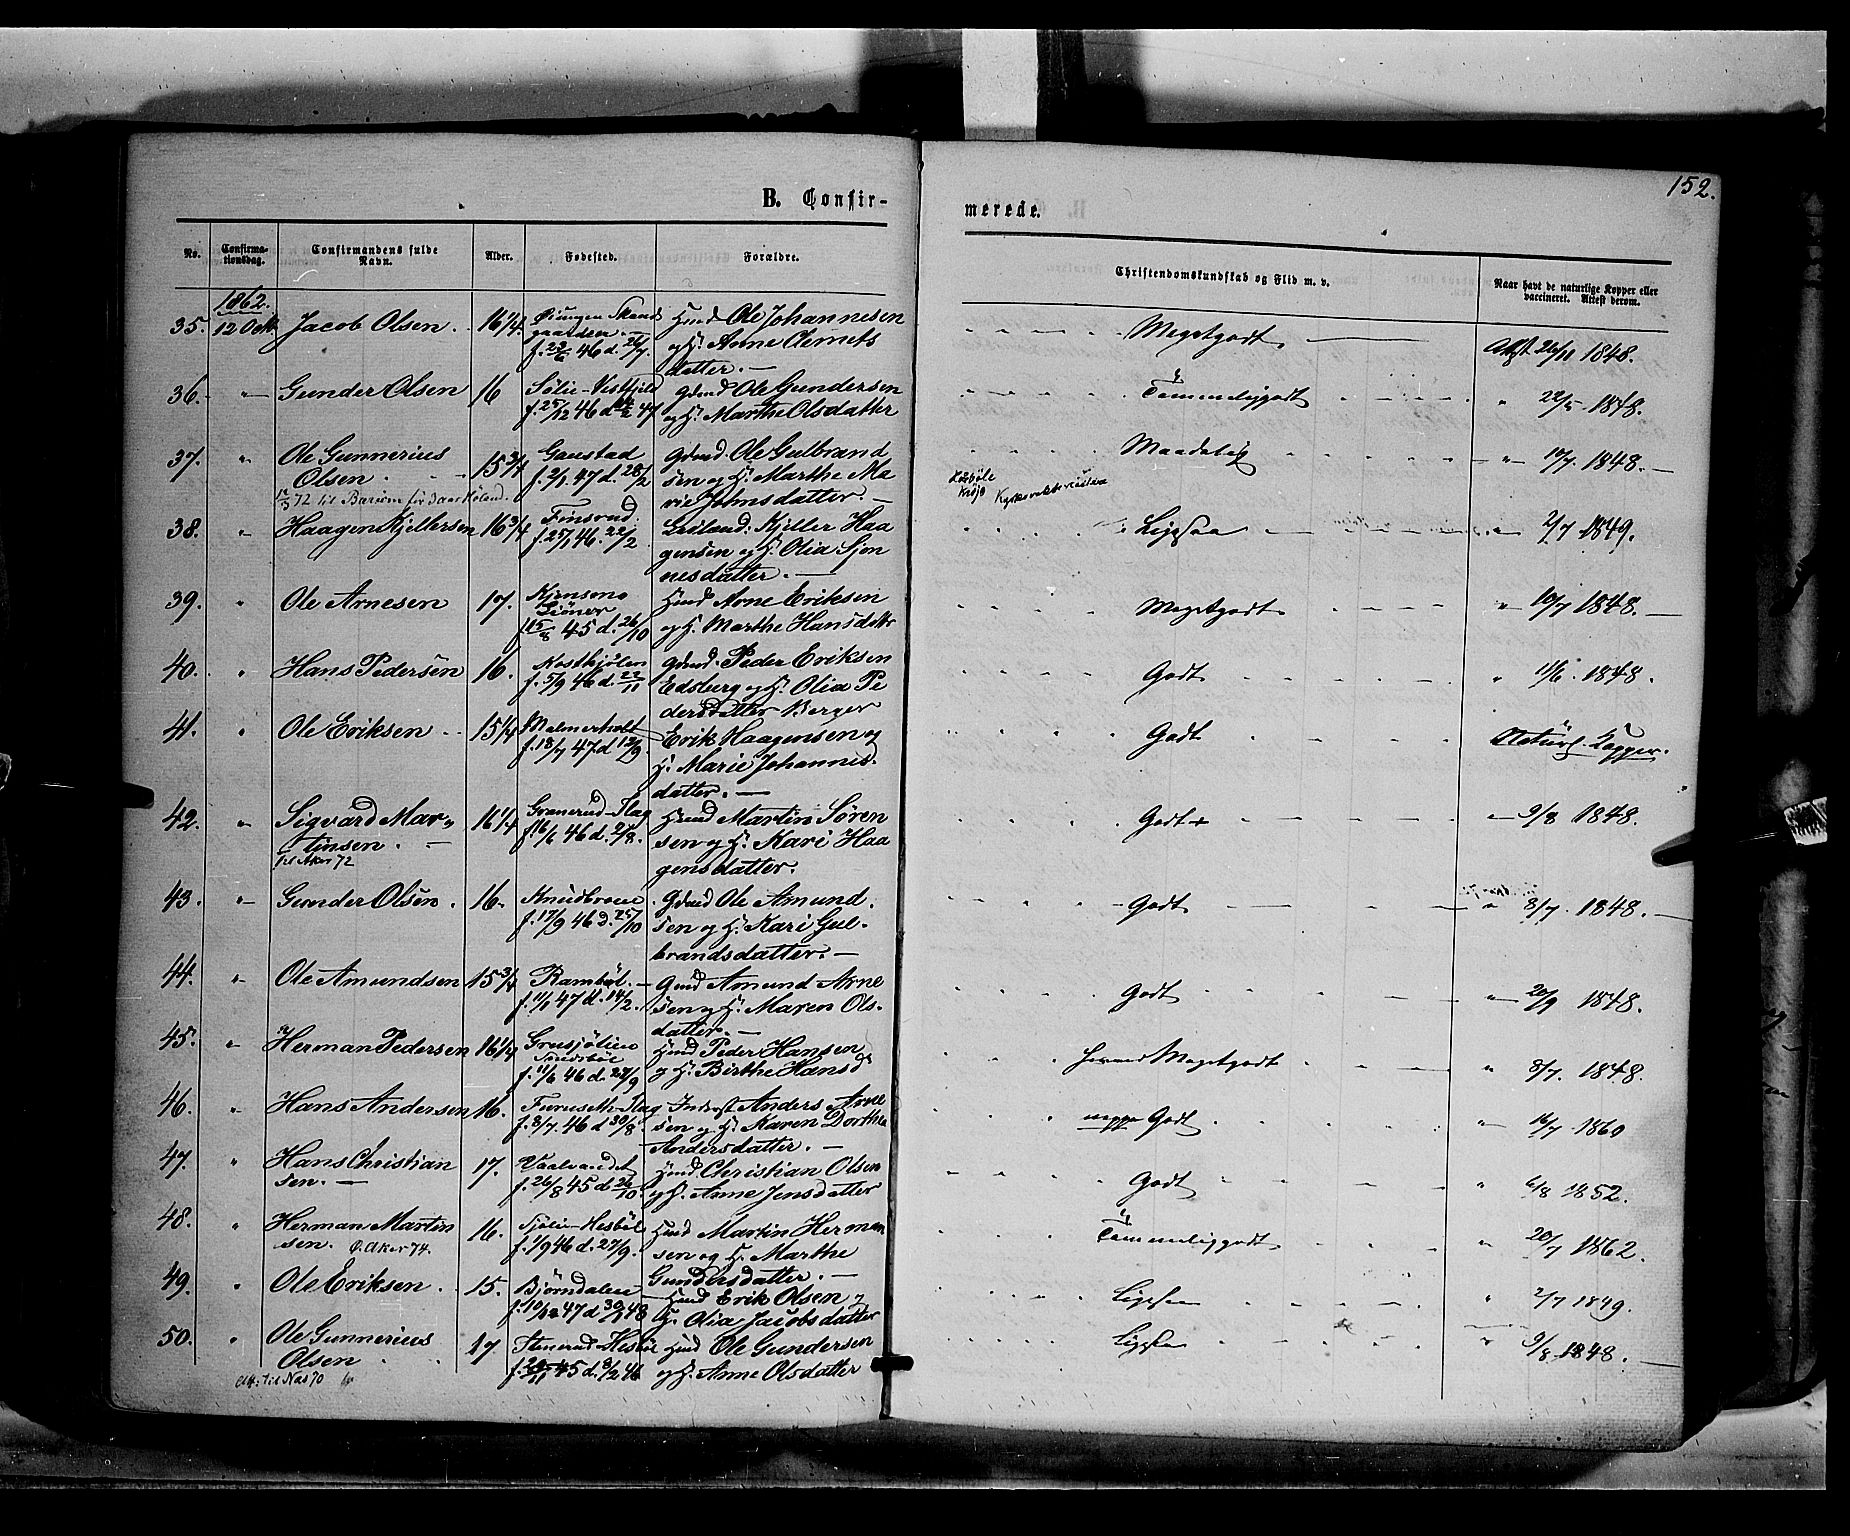 152.
B. Confir-
merede.
No.
Confirma-
tionsdag.
Confirmandens fulde
Navn.
Alder.
Fødested.
Forældre.
Christendomskundskab og Flid m. v.
Naar havt de naturlige Kopper eller
vaccineret. Attest derom.
1862.
35. 12 Octb. Jacob Olsen 16 1/4
f. 22/6 46 d. 26/7.
Huusmd Ole Johannesen
og H. Anne Clemets
datter. —
Megetgodt Attst 26/11 1848.
36. " Gunder Olsen 16 Sølie-Vestfjeld
f. 25/12 46 d. 47
Gdmd Ole Gundersen
og H. Marthe Olsdatter
Temmeliggodt " 22/5 1848.
37. " Ole Gunnerius
Olsen. 15 3/4 Gaustad
f. 2/1 47 d. 28/2
Gdmd. Ole Gulbrand
sen og H. Marthe Ma
rie Johnsdatter. —
Maadelig " 10/7. 1848.
12/3 72 til Bærum for Høland.
38. " Haagen Kjellersen 16 3/4 Finsrud
f. 25/1 46. 22/2
Kjeller Haa
gensen og H. Olia Sjon
nesdatter. —
Ligesaa " 2/7 1849.
39. " Ole Arnesen 17.
f. 15/8 45 d. 26/10
Huusmd Arne Eriksen
og H. Marthe Hansdttr
Megetgodt " 10/7 1848.
40. " Hans Pedersen 16.
f. 5/9 46 d. 22/11
Gdmd. Peder Eriksen
Edsberg og H. Olia Pe
dersdatter Berger
Godt " 11/6. 1848.
41. " Ole Eriksen 15 1/4 Malmerholt
f. 18/7 47 d 12/9.
Erik Haagensen og
H. Marie Johannis-
datter. —
Godt Natürl. Kopper.
42. " Sigvard Mar-
tinsen. 16 1/4 Granerud-Flag
f. 16/6 46 d. 2/8.
Huusmd Martin Søren
sen og H. Kari Haa
gensdatter.
Godt " 9/8 1848.
til Aker 72
43. " Gunder Olsen. 16. Knudbraaten
f. 17/9 46 d. 25/10
Gdmd Ole Amund
sen og H. Kari Gul-
brandsdatter. —
Godt " 8/7. 1848.
44. " Ole Amundsen 15 3/4 Rambøl.
f. 11/1 47 d. 14/2.
Gmd Amund Arne
sen og H. Maren Ols-
datter. —
Godt " 20/9 1848.
45. " Herman Pedersen 16 1/4 Gransjølien
f. 11/6 46 d. 27/9
Huusmd Peder Hansen
og H. Birthe Hansd
Megetgodt " 8/7. 1848.
46. " Hans Andersen 16. Furuseth-Flag
f. 8/7. 46 d 30/8
Inderst Anders Arne
sen og H. Karen Dorthea
Andersdatter. —
neppe Godt " 16/7 1860
47. " Hans Christian
sen. — 17. Vaalvandet
f. 26/8 45 d 26/10.
Huusmd Christian Olsen
og H. Anne Jensdatter
Godt " 6/8 1852.
48. " Herman Martin
sen. Ø. Aker 74. 16. Sjølie-Hesbøl
f. 1/9 46 d. 27/9.
Huusmd Martin Herman
sen og H. Marthe
Gundersdatter. —
Temmeliggodt " 20/7 1862.
49. " Ole Eriksen. 15. Bjørndalen
f. 10/12 47 d 30/1 48
Huusmd Erik Olsen og
H. Olia Jacobsdatter
Ligesaa " 2/7 1849.
50. " Ole Gunnerius
Olsen 17. Stenerud-Hesbøl
f. 20/11 45 d. 8/2 46
Huusmd Ole Gundersen
og H. Anne Olsdatter
Ligesaa " 9/8 1848.
Att: til Nas 70